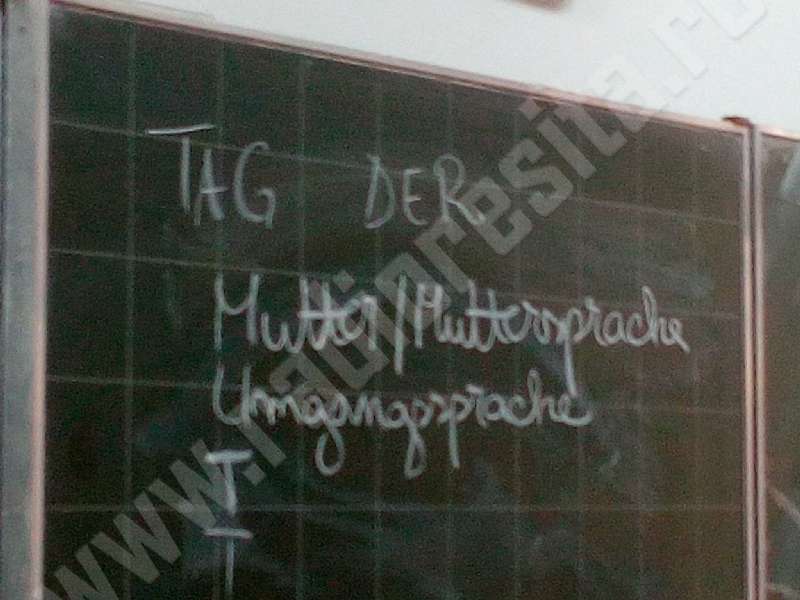 TAG DER
Mutter/Muttersprache
Umgangssprache
T
T
www.radioresita.ro